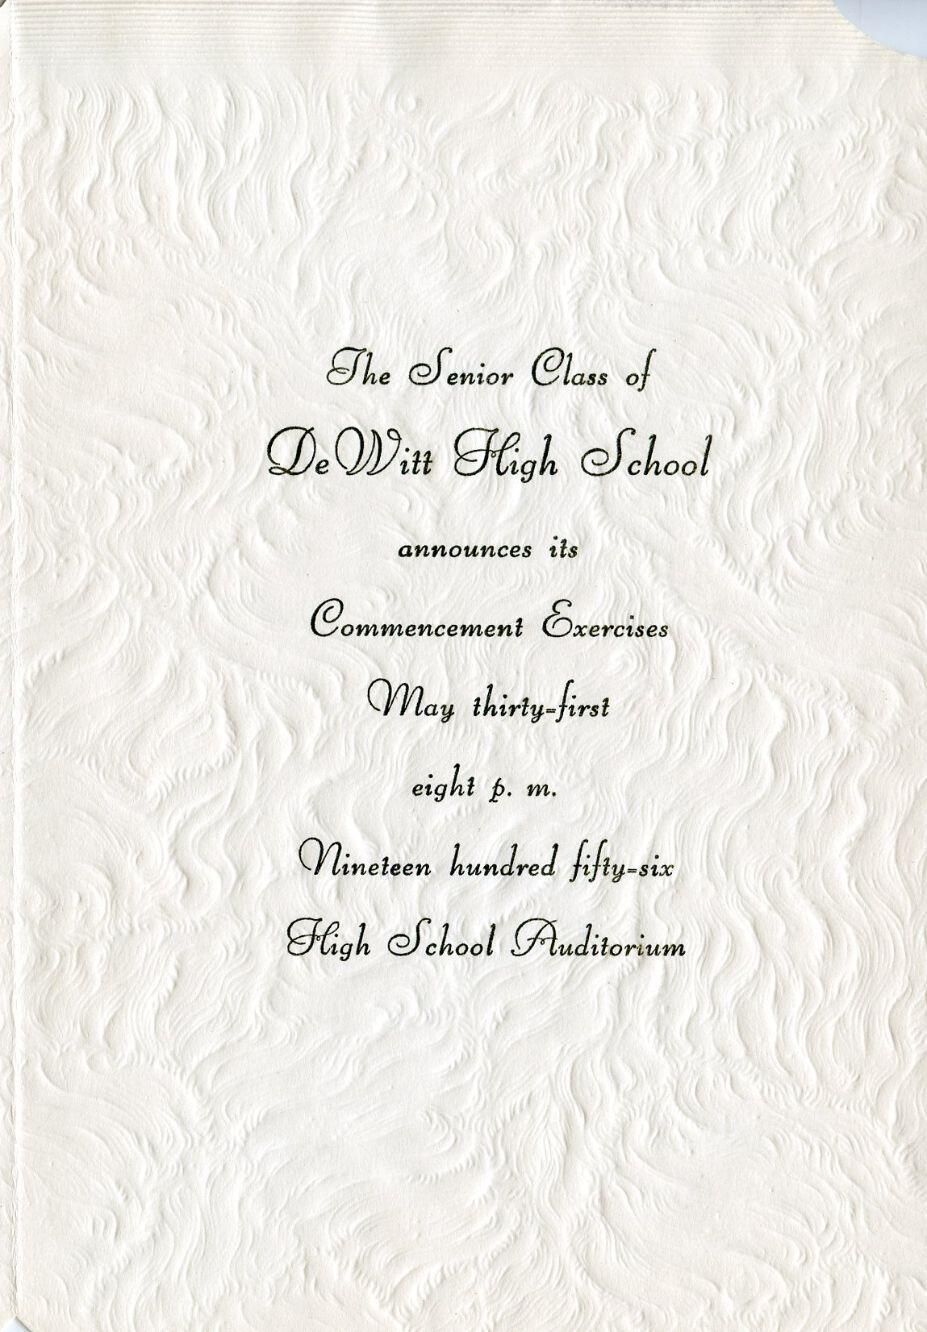 The Senior Class of
DeWitt High School
announces its
Commencement Exercises
May thirty-first
eight p. m.
Nineteen hundred fifty-six
High School Auditorium